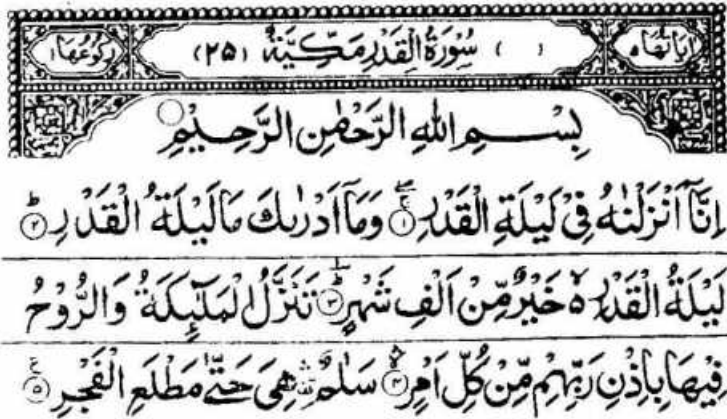 اٰيَاتُهَا ٥ ( ) سُوْرَةُ الْقَدْرِ مَكِّيَّةٌ (٢٥) رُكُوْعُهَا ١
بِسْمِ اللهِ الرَّحْمٰنِ الرَّحِيْمِ
اِنَّآ اَنْزَلْنٰهُ فِيْ لَيْلَةِ الْقَدْرِ ۝١ وَمَآ اَدْرٰىكَ مَا لَيْلَةُ الْقَدْرِ ۝٢ؕ
لَيْلَةُ الْقَدْرِ ۙ۬ خَيْرٌ مِّنْ اَلْفِ شَهْرٍ ۝٣ؕ تَنَزَّلُ الْمَلٰٓئِكَةُ وَالرُّوْحُ
فِيْهَا بِاِذْنِ رَبِّهِمْ مِّنْ كُلِّ اَمْرٍ ۝٤ۛ سَلٰمٌ ۛ هِيَ حَتّٰى مَطْلَعِ الْفَجْرِ ۝٥